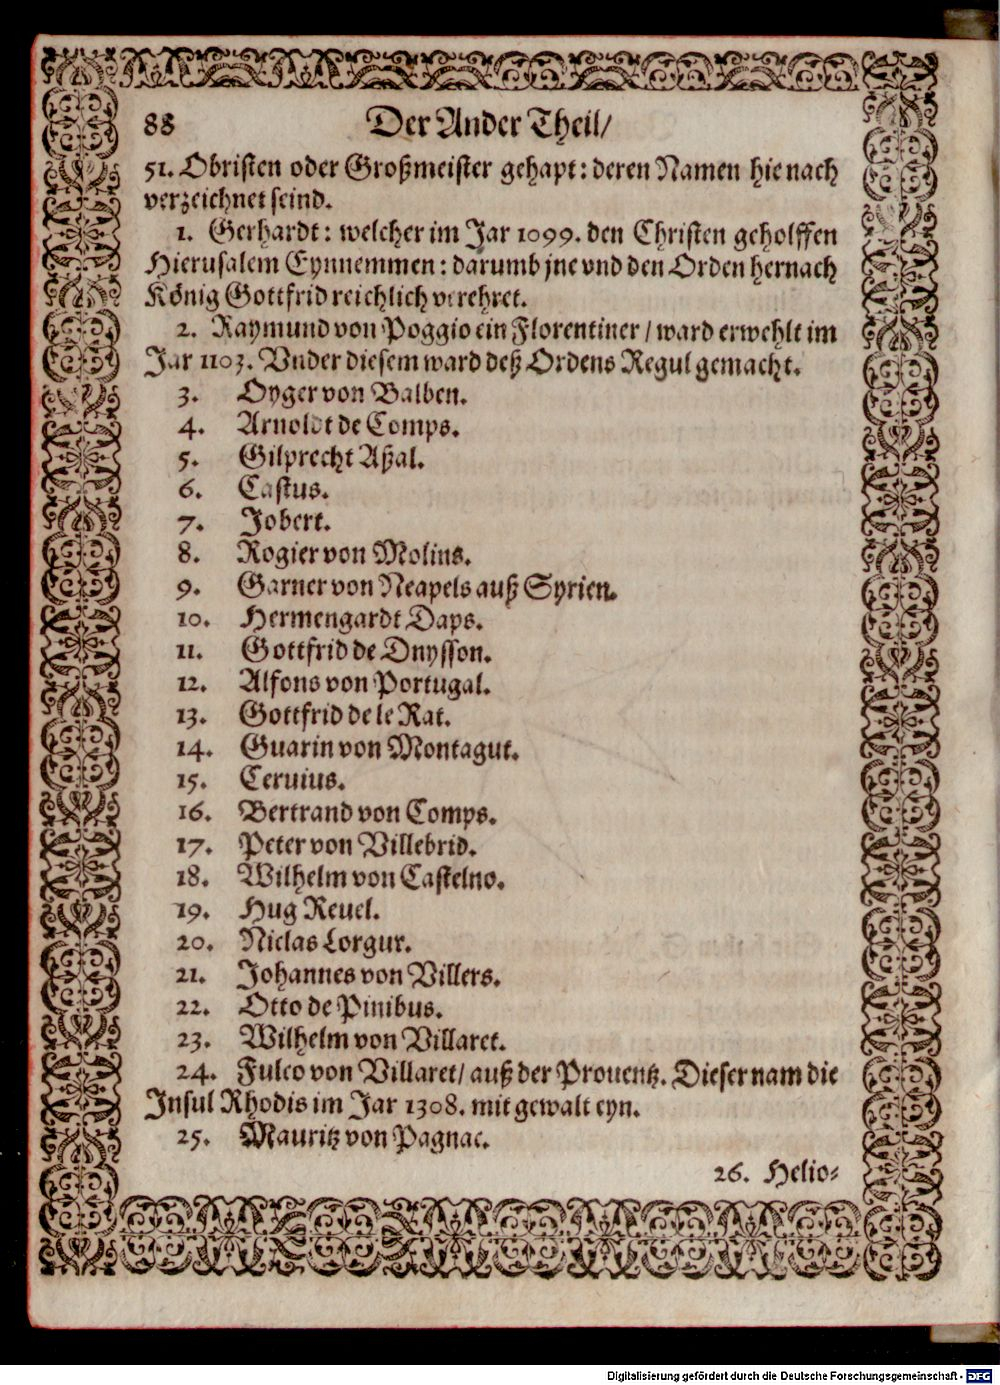 88 Der Ander Theil/
51. Obristen oder Großmeister gehapt: deren Namen hie nach
verzeichnet seind.
1. Gerhardt: welcher im Jar 1099. den Christen geholffen
Hierusalem Eynnemmen: darumb jne vnd den Orden hernach
König Gottfrid reichlich verehret.
2. Raymund von Poggio ein Florentiner / ward erwehlt im
Jar 1103. Vnder diesem ward deß Ordens Regul gemacht.
3. Oyger von Balben.
4. Arnoldt de Comps.
5. Gilprecht Aßal.
6. Castus.
7. Jobert.
8. Rogier von Molins.
9. Garner von Neapels auß Syrien.
10. Hermengardt Daps.
11. Gottfrid de Dnysson.
12. Alfons von Portugal.
13. Gottfrid de le Rat.
14. Guarin von Montagut.
15. Ceruius.
16. Bertrand von Comps.
17. Peter von Villebrid.
18. Wilhelm von Castelno.
19. Hug Reuel.
20. Niclas Lorgur.
21. Johannes von Villers.
22. Otto de Pinibus.
23. Wilhelm von Villaret.
24. Fulco von Villaret/ auß der Prouentz. Dieser nam die
Insul Rhodis im Jar 1308. mit gewalt eyn.
25. Mauritz von Pagnac.
26. Helio-
Digitalisierung gefördert durch die Deutsche Forschungsgemeinschaft - DFG